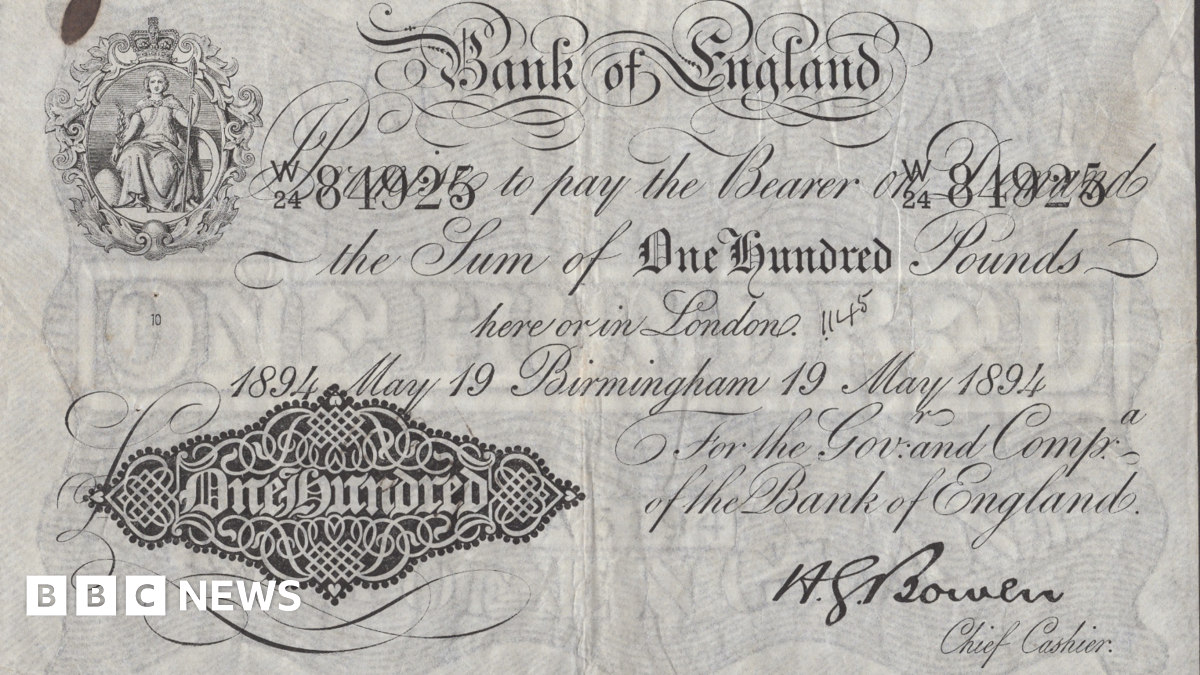 Bank of England
W/24 84925 Promise to pay the Bearer on Demand W/24 84925
the Sum of One Hundred Pounds
here or in London. 1145
10
1894 May 19 Birmingham 19 May 1894
For the Govr: and Compa:
of the Bank of England.
One Hundred
H.G. Bowen
Chief Cashier.
ONE HUNDRED
BBC NEWS